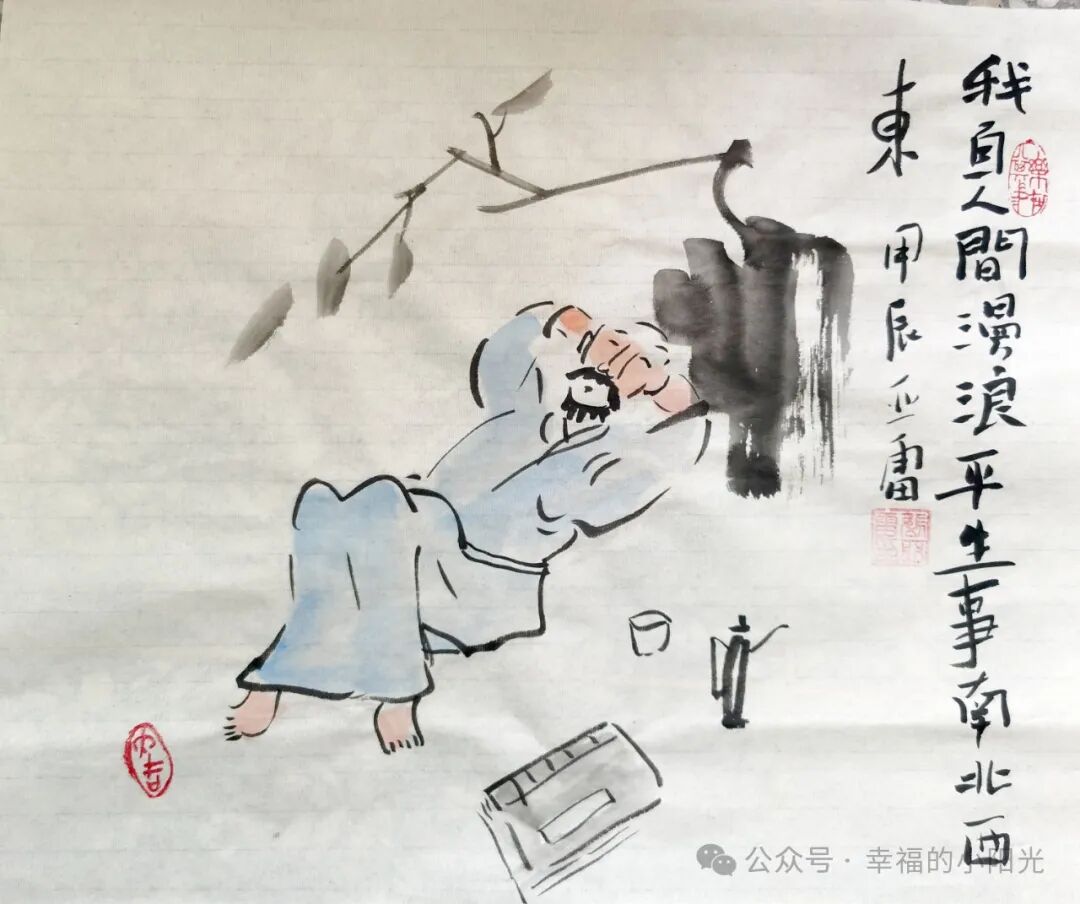 我自人間漫浪平生事南北西
東
甲辰亚雷
大吉
公众号·幸福的小阳光